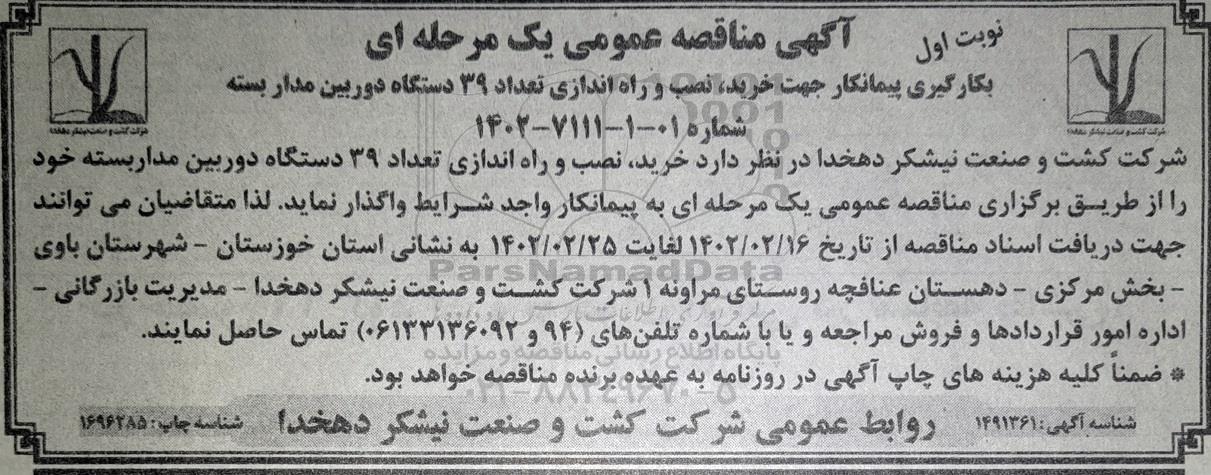 آگهی مناقصه عمومی یک مرحله ای
نوبت اول
بکارگیری پیمانکار جهت خرید، نصب و راه اندازی تعداد ۳۹ دستگاه دوربین مدار بسته
شماره ۰۱-۱-۷۱۱۱-۱۴۰۲
شرکت کشت و صنعت نیشکر دهخدا
شرکت کشت و صنعت نیشکر دهخدا
شرکت کشت و صنعت نیشکر دهخدا در نظر دارد خرید، نصب و راه اندازی تعداد ۳۹ دستگاه دوربین مداربسته خود
را از طریق برگزاری مناقصه عمومی یک مرحله ای به پیمانکار واجد شرایط واگذار نماید. لذا متقاضیان می توانند
جهت دریافت اسناد مناقصه از تاریخ ۱۴۰۲/۰۲/۱۶ لغایت ۱۴۰۲/۰۲/۲۵ به نشانی استان خوزستان - شهرستان باوی
- بخش مرکزی - دهستان عنافچه روستای مراونه ۱ شرکت کشت و صنعت نیشکر دهخدا - مدیریت بازرگانی -
اداره امور قراردادها و فروش مراجعه و یا با شماره تلفن‌های (۹۴ و ۰۶۱۳۳۱۳۶۰۹۲) تماس حاصل نمایند.
* ضمناً کلیه هزینه های چاپ آگهی در روزنامه به عهده برنده مناقصه خواهد بود.
شناسه آگهی: ۱۴۹۱۳۶۱
روابط عمومی شرکت کشت و صنعت نیشکر دهخدا
شناسه چاپ: ۱۶۹۶۲۸۵
ParsNamadData
پایگاه اطلاع رسانی مناقصه و مزایده
۰۲۱-۸۸۳۴۹۶۷۰-۵